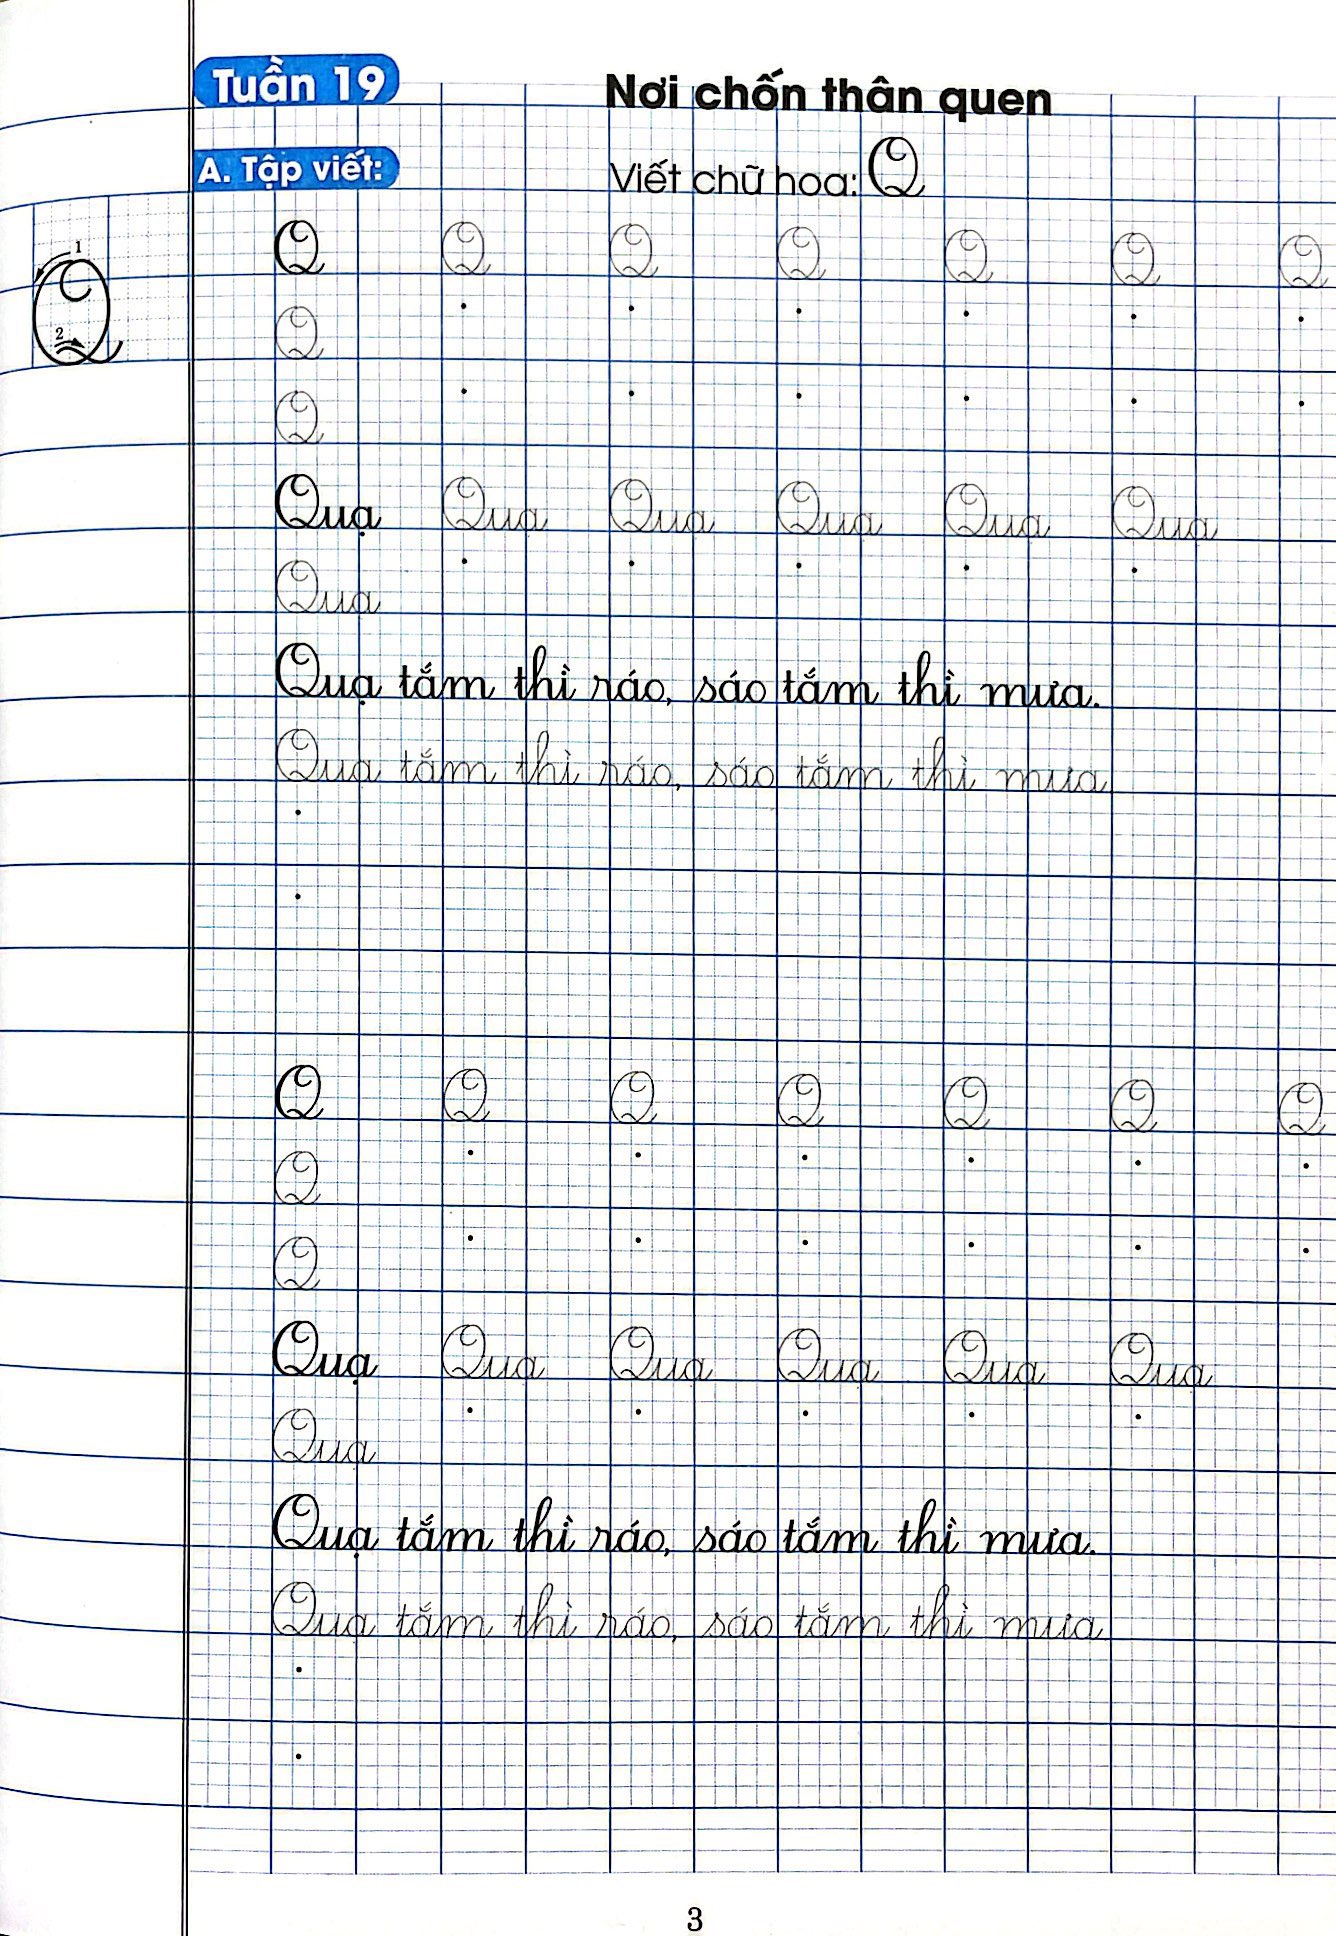 Tuần 19 Nơi chốn thân quen
A. Tập viết: Viết chữ hoa: Q
1
2
Q Q Q Q Q Q Q
Q
Q
Quạ Quạ Quạ Quạ Quạ Quạ
Quạ
Quạ tắm thì ráo, sáo tắm thì mưa.
Quạ tắm thì ráo, sáo tắm thì mưa
Q Q Q Q Q Q Q
Q
Q
Quạ Quạ Quạ Quạ Quạ Quạ
Quạ
Quạ tắm thì ráo, sáo tắm thì mưa.
Quạ tắm thì ráo, sáo tắm thì mưa
3